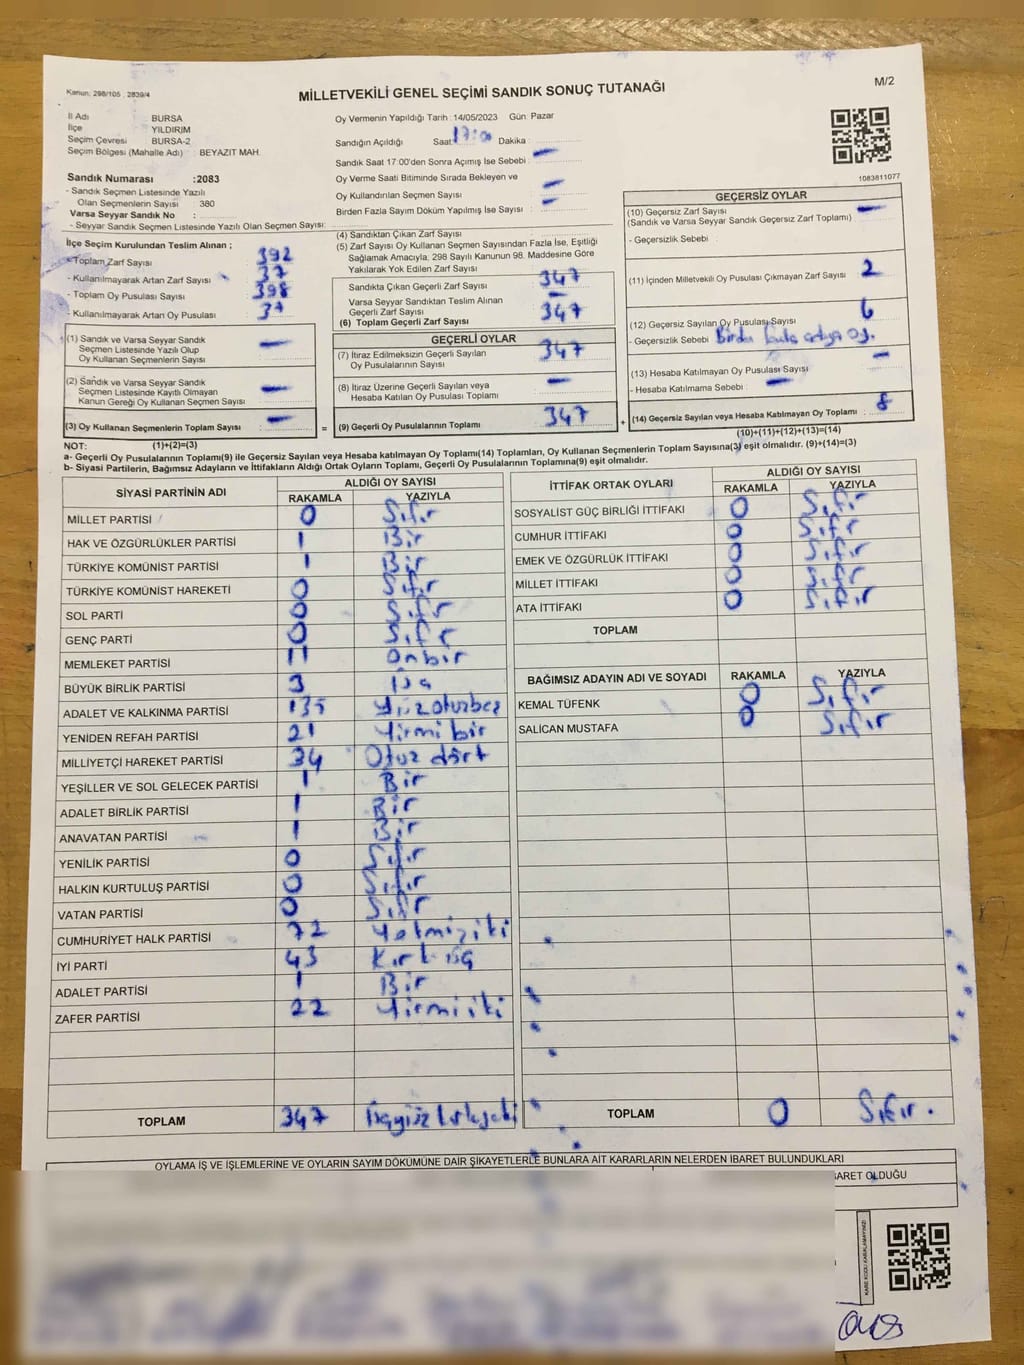 Kanun: 298/105 , 2839/4
MİLLETVEKİLİ GENEL SEÇİMİ SANDIK SONUÇ TUTANAĞI
M/2
İl Adı BURSA
İlçe YILDIRIM
Seçim Çevresi BURSA-2
Seçim Bölgesi (Mahalle Adı) : BEYAZIT MAH.
Sandık Numarası :2083
- Sandık Seçmen Listesinde Yazılı
Olan Seçmenlerin Sayısı 380
Varsa Seyyar Sandık No :
- Seyyar Sandık Seçmen Listesinde Yazılı Olan Seçmen Sayısı:
Oy Vermenin Yapıldığı Tarih :14/05/2023 Gün: Pazar
Sandığın Açıldığı Saat: 17:00 Dakika :
Sandık Saat 17 00'den Sonra Açımış İse Sebebi : —
Oy Verme Saati Bitiminde Sırada Bekleyen ve
Oy Kullandırılan Seçmen Sayısı : —
Birden Fazla Sayım Döküm Yapılmış İse Sayısı : —
1083811077
İlçe Seçim Kurulundan Teslim Alınan ;
- Toplam Zarf Sayısı : 392
- Kullanılmayarak Artan Zarf Sayısı : 37
- Toplam Oy Pusulası Sayısı : 398
- Kullanılmayarak Artan Oy Pusulası : 37
(1) Sandık ve Varsa Seyyar Sandık
Seçmen Listesinde Yazılı Olup
Oy Kullanan Seçmenlerin Sayısı : —
(2) Sandık ve Varsa Seyyar Sandık
Seçmen Listesinde Kayıtlı Olmayan
Kanun Gereği Oy Kullanan Seçmen Sayısı : —
(3) Oy Kullanan Seçmenlerin Toplam Sayısı : —
(4) Sandıktan Çıkan Zarf Sayısı :
(5) Zarf Sayısı Oy Kullanan Seçmen Sayısından Fazla İse, Eşitliği
Sağlamak Amacıyla, 298 Sayılı Kanunun 98. Maddesine Göre
Yakılarak Yok Edilen Zarf Sayısı :
Sandıkta Çıkan Geçerli Zarf Sayısı : 347
Varsa Seyyar Sandıktan Teslim Alınan
Geçerli Zarf Sayısı : —
(6) Toplam Geçerli Zarf Sayısı : 347
GEÇERLİ OYLAR
(7) İtiraz Edilmeksizin Geçerli Sayılan
Oy Pusulalarının Sayısı : 347
(8) İtiraz Üzerine Geçerli Sayılan veya
Hesaba Katılan Oy Pusulası Toplamı : —
= (9) Geçerli Oy Pusulalarının Toplamı : 347 +
GEÇERSİZ OYLAR
(10) Geçersiz Zarf Sayısı : —
(Sandık ve Varsa Seyyar Sandık Geçersiz Zarf Toplamı)
- Geçersizlik Sebebi :
(11) İçinden Milletvekili Oy Pusulası Çıkmayan Zarf Sayısı : 2
(12) Geçersiz Sayılan Oy Pusulası Sayısı : 6
- Geçersizlik Sebebi : Birden fazla oy.
(13) Hesaba Katılmayan Oy Pusulası Sayısı : —
- Hesaba Katılmama Sebebi : —
(14) Geçersiz Sayılan veya Hesaba Katılmayan Oy Toplamı : 8
NOT: (1)+(2)=(3) (10)+(11)+(12)+(13)=(14)
a- Geçerli Oy Pusulalarının Toplamı(9) ile Geçersiz Sayılan veya Hesaba katılmayan Oy Toplamı(14) Toplamları, Oy Kullanan Seçmenlerin Toplam Sayısına(3) eşit olmalıdır. (9)+(14)=(3)
b- Siyasi Partilerin, Bağımsız Adayların ve İttifakların Aldığı Ortak Oyların Toplamı, Geçerli Oy Pusulalarının Toplamına(9) eşit olmalıdır.
SİYASİ PARTİNİN ADI ALDIĞI OY SAYISI
RAKAMLA YAZIYLA
MİLLET PARTİSİ 0 Sıfır
HAK VE ÖZGÜRLÜKLER PARTİSİ 1 Bir
TÜRKİYE KOMÜNİST PARTİSİ 1 Bir
TÜRKİYE KOMÜNİST HAREKETİ 0 Sıfır
SOL PARTİ 0 Sıfır
GENÇ PARTİ 0 Sıfır
MEMLEKET PARTİSİ 11 Onbir
BÜYÜK BİRLİK PARTİSİ 3 Üç
ADALET VE KALKINMA PARTİSİ 135 Yüzotuzbeş
YENİDEN REFAH PARTİSİ 21 Yirmi bir
MİLLİYETÇİ HAREKET PARTİSİ 34 Otuz dört
YEŞİLLER VE SOL GELECEK PARTİSİ 1 Bir
ADALET BİRLİK PARTİSİ 1 Bir
ANAVATAN PARTİSİ 1 Bir
YENİLİK PARTİSİ 0 Sıfır
HALKIN KURTULUŞ PARTİSİ 0 Sıfır
VATAN PARTİSİ 0 Sıfır
CUMHURİYET HALK PARTİSİ 72 Yetmiş iki
İYİ PARTİ 43 Kırk üç
ADALET PARTİSİ 1 Bir
ZAFER PARTİSİ 22 Yirmi iki
TOPLAM 347 Üçyüz kırkyedi
İTTİFAK ORTAK OYLARI ALDIĞI OY SAYISI
RAKAMLA YAZIYLA
SOSYALİST GÜÇ BİRLİĞİ İTTİFAKI 0 Sıfır
CUMHUR İTTİFAKI 0 Sıfır
EMEK VE ÖZGÜRLÜK İTTİFAKI 0 Sıfır
MİLLET İTTİFAKI 0 Sıfır
ATA İTTİFAKI 0 Sıfır
TOPLAM
BAĞIMSIZ ADAYIN ADI VE SOYADI RAKAMLA YAZIYLA
KEMAL TÜFENK 0 Sıfır
SALİCAN MUSTAFA 0 Sıfır
TOPLAM 0 Sıfır.
OYLAMA İŞ VE İŞLEMLERİNE VE OYLARIN SAYIM DÖKÜMÜNE DAİR ŞİKAYETLERLE BUNLARA AİT KARARLARIN NELERDEN İBARET BULUNDUKLARI
BARET OLDUĞU
KARE KODU KARALAMAYINIZ!